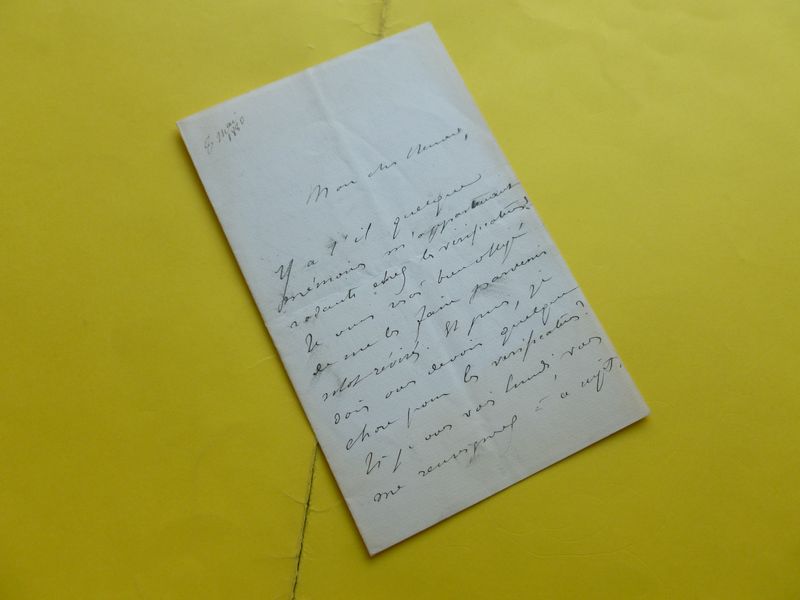 Mai
1860
Mon cher
Y a t'il quelque
mémoire m'appartenant
chez les vérificateurs
Je vous serai bien obligé
de me les faire parvenir
révisés. Et puis, je
dois vous devoir quelque
chose pour les vérifications.
Si je vous vois lundi, vous
me renseignerez à ce sujet.